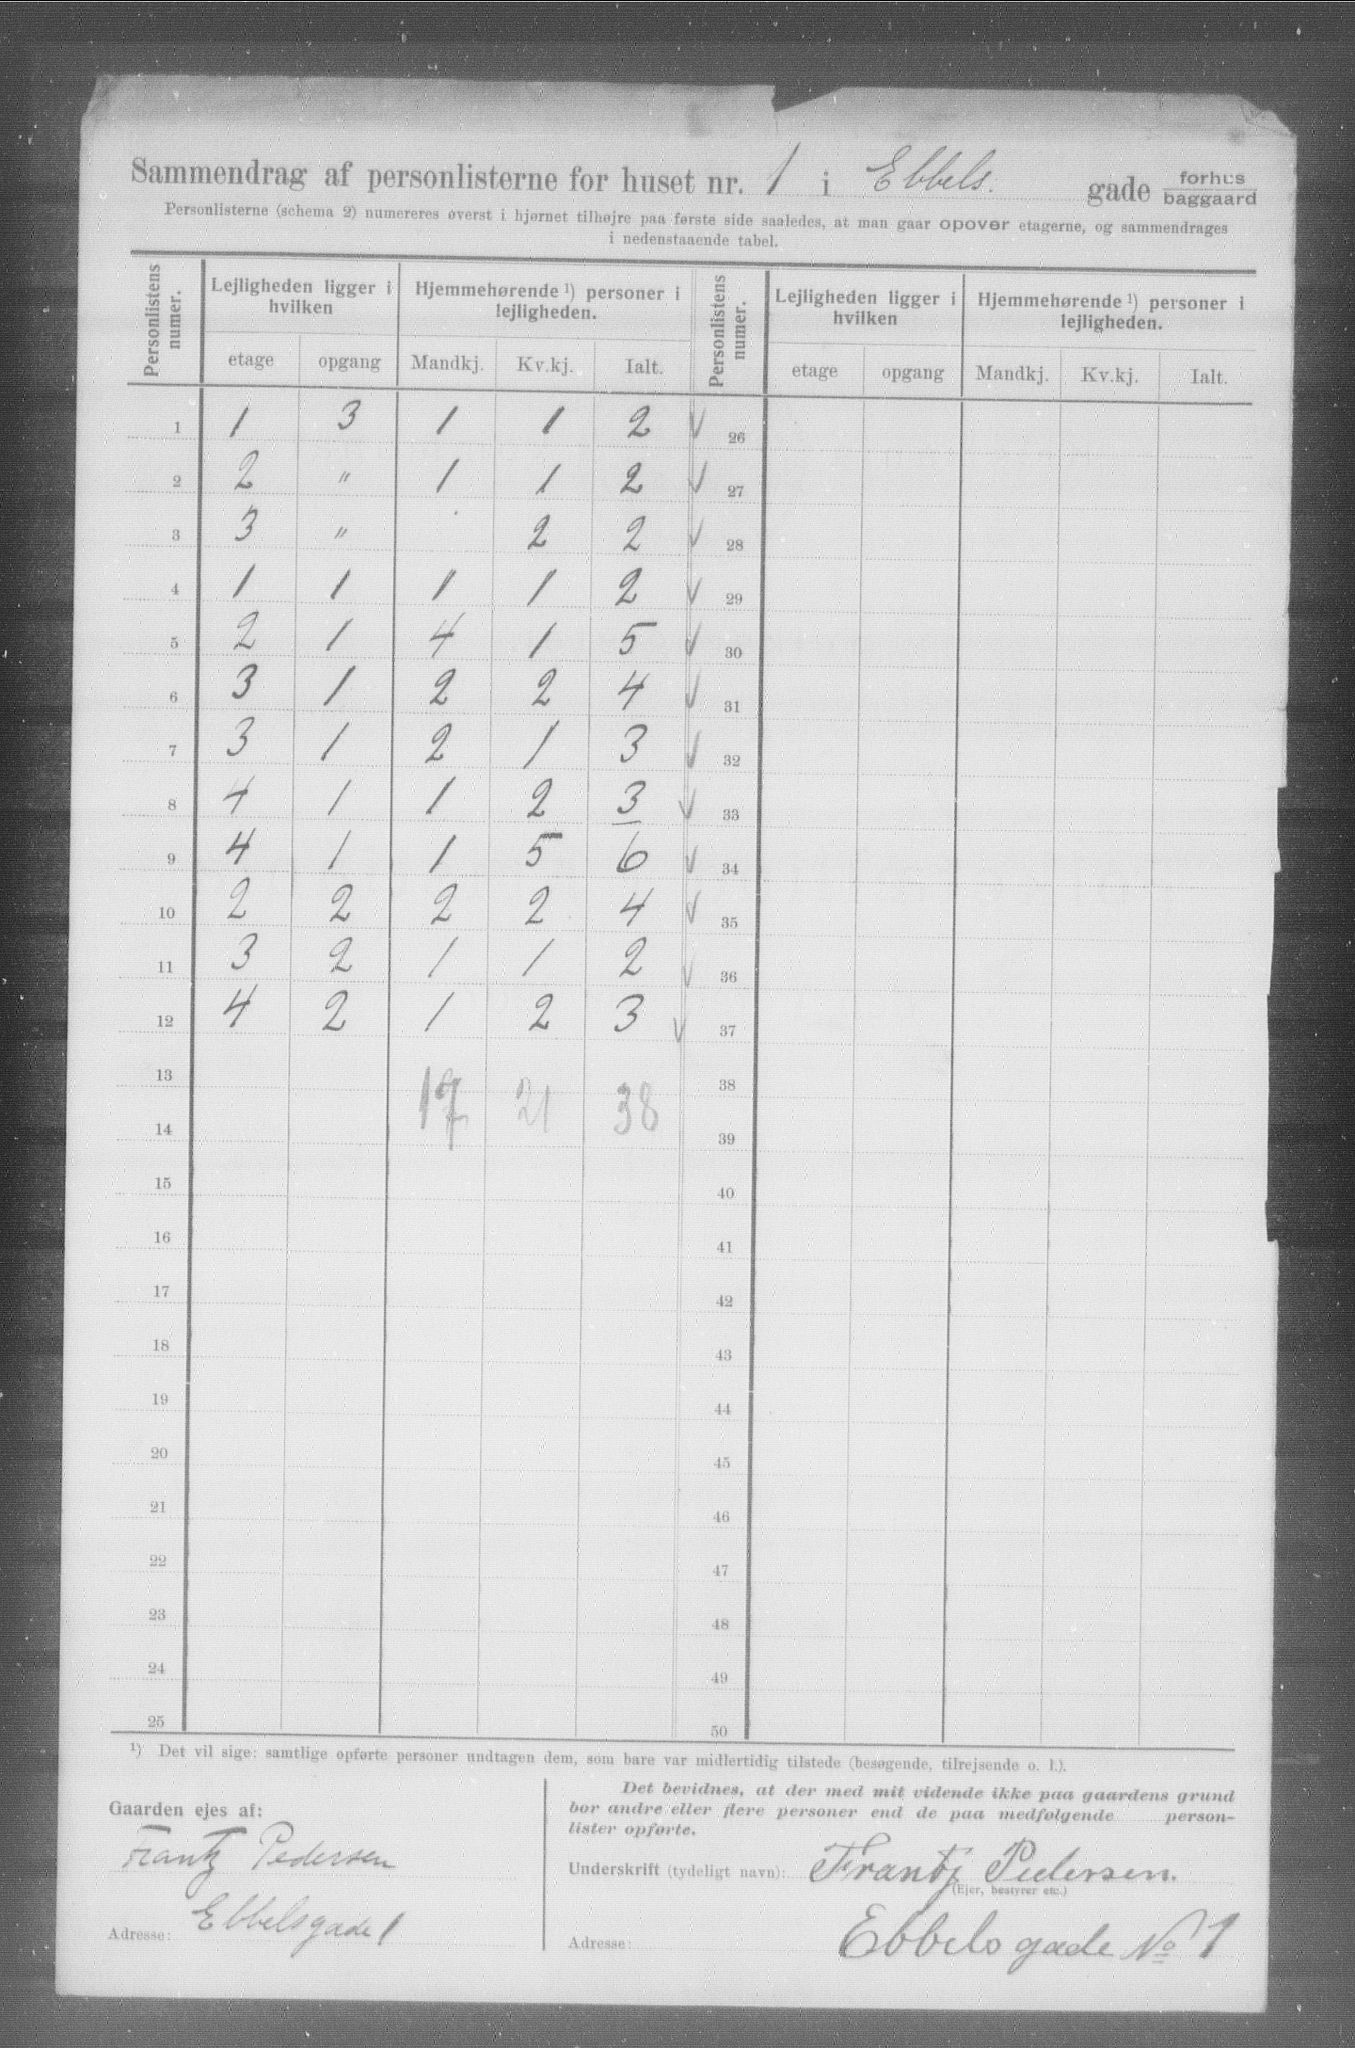 Sammendrag af personlisterne for huset nr. 1 i Ebbels. gade forhus baggaard
Personlisterne (schema 2) numereres øverst i hjørnet tilhøjre paa første side saaledes, at man gaar opover etagerne, og sammendrages
i nedenstaaende tabel.
Personlistens numer. | Lejligheden ligger i hvilken | Hjemmehørende ¹) personer i lejligheden. | Personlistens numer. | Lejligheden ligger i hvilken | Hjemmehørende ¹) personer i lejligheden.
etage | opgang | Mandkj. | Kv.kj. | Ialt. | etage | opgang | Mandkj. | Kv.kj. | Ialt.
1 | 1 | 3 | 1 | 1 | 2 ✓ | 26
2 | 2 | " | 1 | 1 | 2 ✓ | 27
3 | 3 | " | | 2 | 2 ✓ | 28
4 | 1 | 1 | 1 | 1 | 2 ✓ | 29
5 | 2 | 1 | 4 | 1 | 5 ✓ | 30
6 | 3 | 1 | 2 | 2 | 4 ✓ | 31
7 | 3 | 1 | 2 | 1 | 3 ✓ | 32
8 | 4 | 1 | 1 | 2 | 3 ✓ | 33
9 | 4 | 1 | 1 | 5 | 6 ✓ | 34
10 | 2 | 2 | 2 | 2 | 4 ✓ | 35
11 | 3 | 2 | 1 | 1 | 2 ✓ | 36
12 | 4 | 2 | 1 | 2 | 3 ✓ | 37
13 | | | 17 | 21 | 38 | 38
14 | 39
15 | 40
16 | 41
17 | 42
18 | 43
19 | 44
20 | 45
21 | 46
22 | 47
23 | 48
24 | 49
25 | 50
¹) Det vil sige: samtlige opførte personer undtagen dem, som bare var midlertidig tilstede (besøgende, tilrejsende o. l.).
Gaarden ejes af:
Frantz Pedersen
Adresse: Ebbelsgade 1
Det bevidnes, at der med mit vidende ikke paa gaardens grund
bor andre eller flere personer end de paa medfølgende person-
lister opførte.
Underskrift (tydeligt navn): Frantz Pedersen.
(Ejer, bestyrer etc.)
Adresse: Ebbels gade No 1